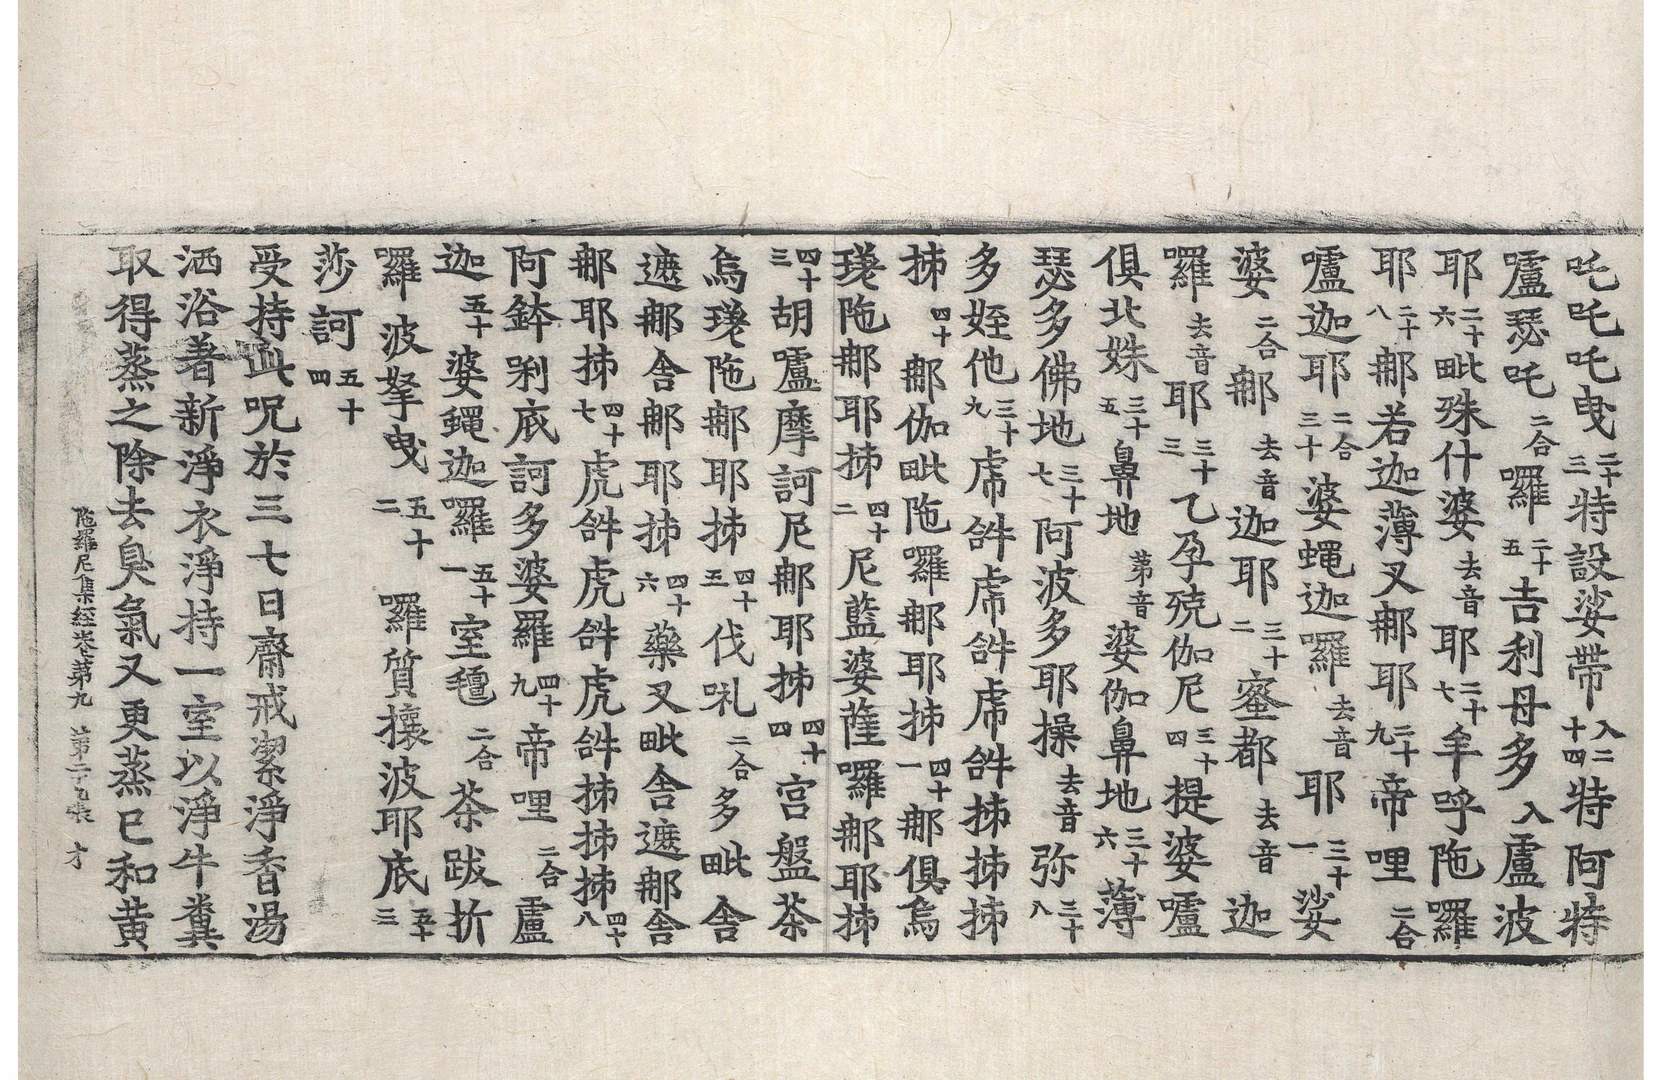 吒吒吒曳二十三特設娑帶入二十四特阿特
嚧瑟吒二合囉二十五吉利母多入盧波
耶二十六毗殊什婆去音耶二十七牟呼陁囉
耶二十八那若迦薄叉那耶二十九帝哩二合
嚧迦耶二合三十婆蠅迦囉去音耶三十一娑
婆二合那去音迦耶三十二蜜都去音迦
囉去音耶三十三乙孕䂨伽尼三十四提婆嚧
俱北姝三十五鼻地苐音婆伽鼻地三十六薄
瑟多佛地三十七阿波多耶操去音弥三十八
多姪他三十九虖𤙖虖𤙖虖𤙖抪抪抪
抪四十那伽毗陁囉那耶抪四十一那俱烏
瑳陁那耶抪四十二尼藍婆薩囉那耶抪
四十三胡嚧摩訶尼那耶抪四十四宫盤茶
烏瑳陁那耶抪四十五伐𠸪二合多毗舍
遮那舍那耶抪四十六藥叉毗舍遮那舍
那耶抪四十七虎𤙖虎𤙖虎𤙖抪抪抪四十八
阿鉢唎底訶多婆羅四十九帝哩二合盧
迦五十婆蠅迦囉五十一室氎二合茶跋折
囉波拏曳五十二囉質攘波耶底五十三
莎訶五十四
受持此呪於三七日齋戒潔淨香湯
洒浴著新淨衣淨持一室以淨牛糞
取得蒸之除去臭氣又更蒸已和黄
陁羅尼集經卷第九 第二十九張 才